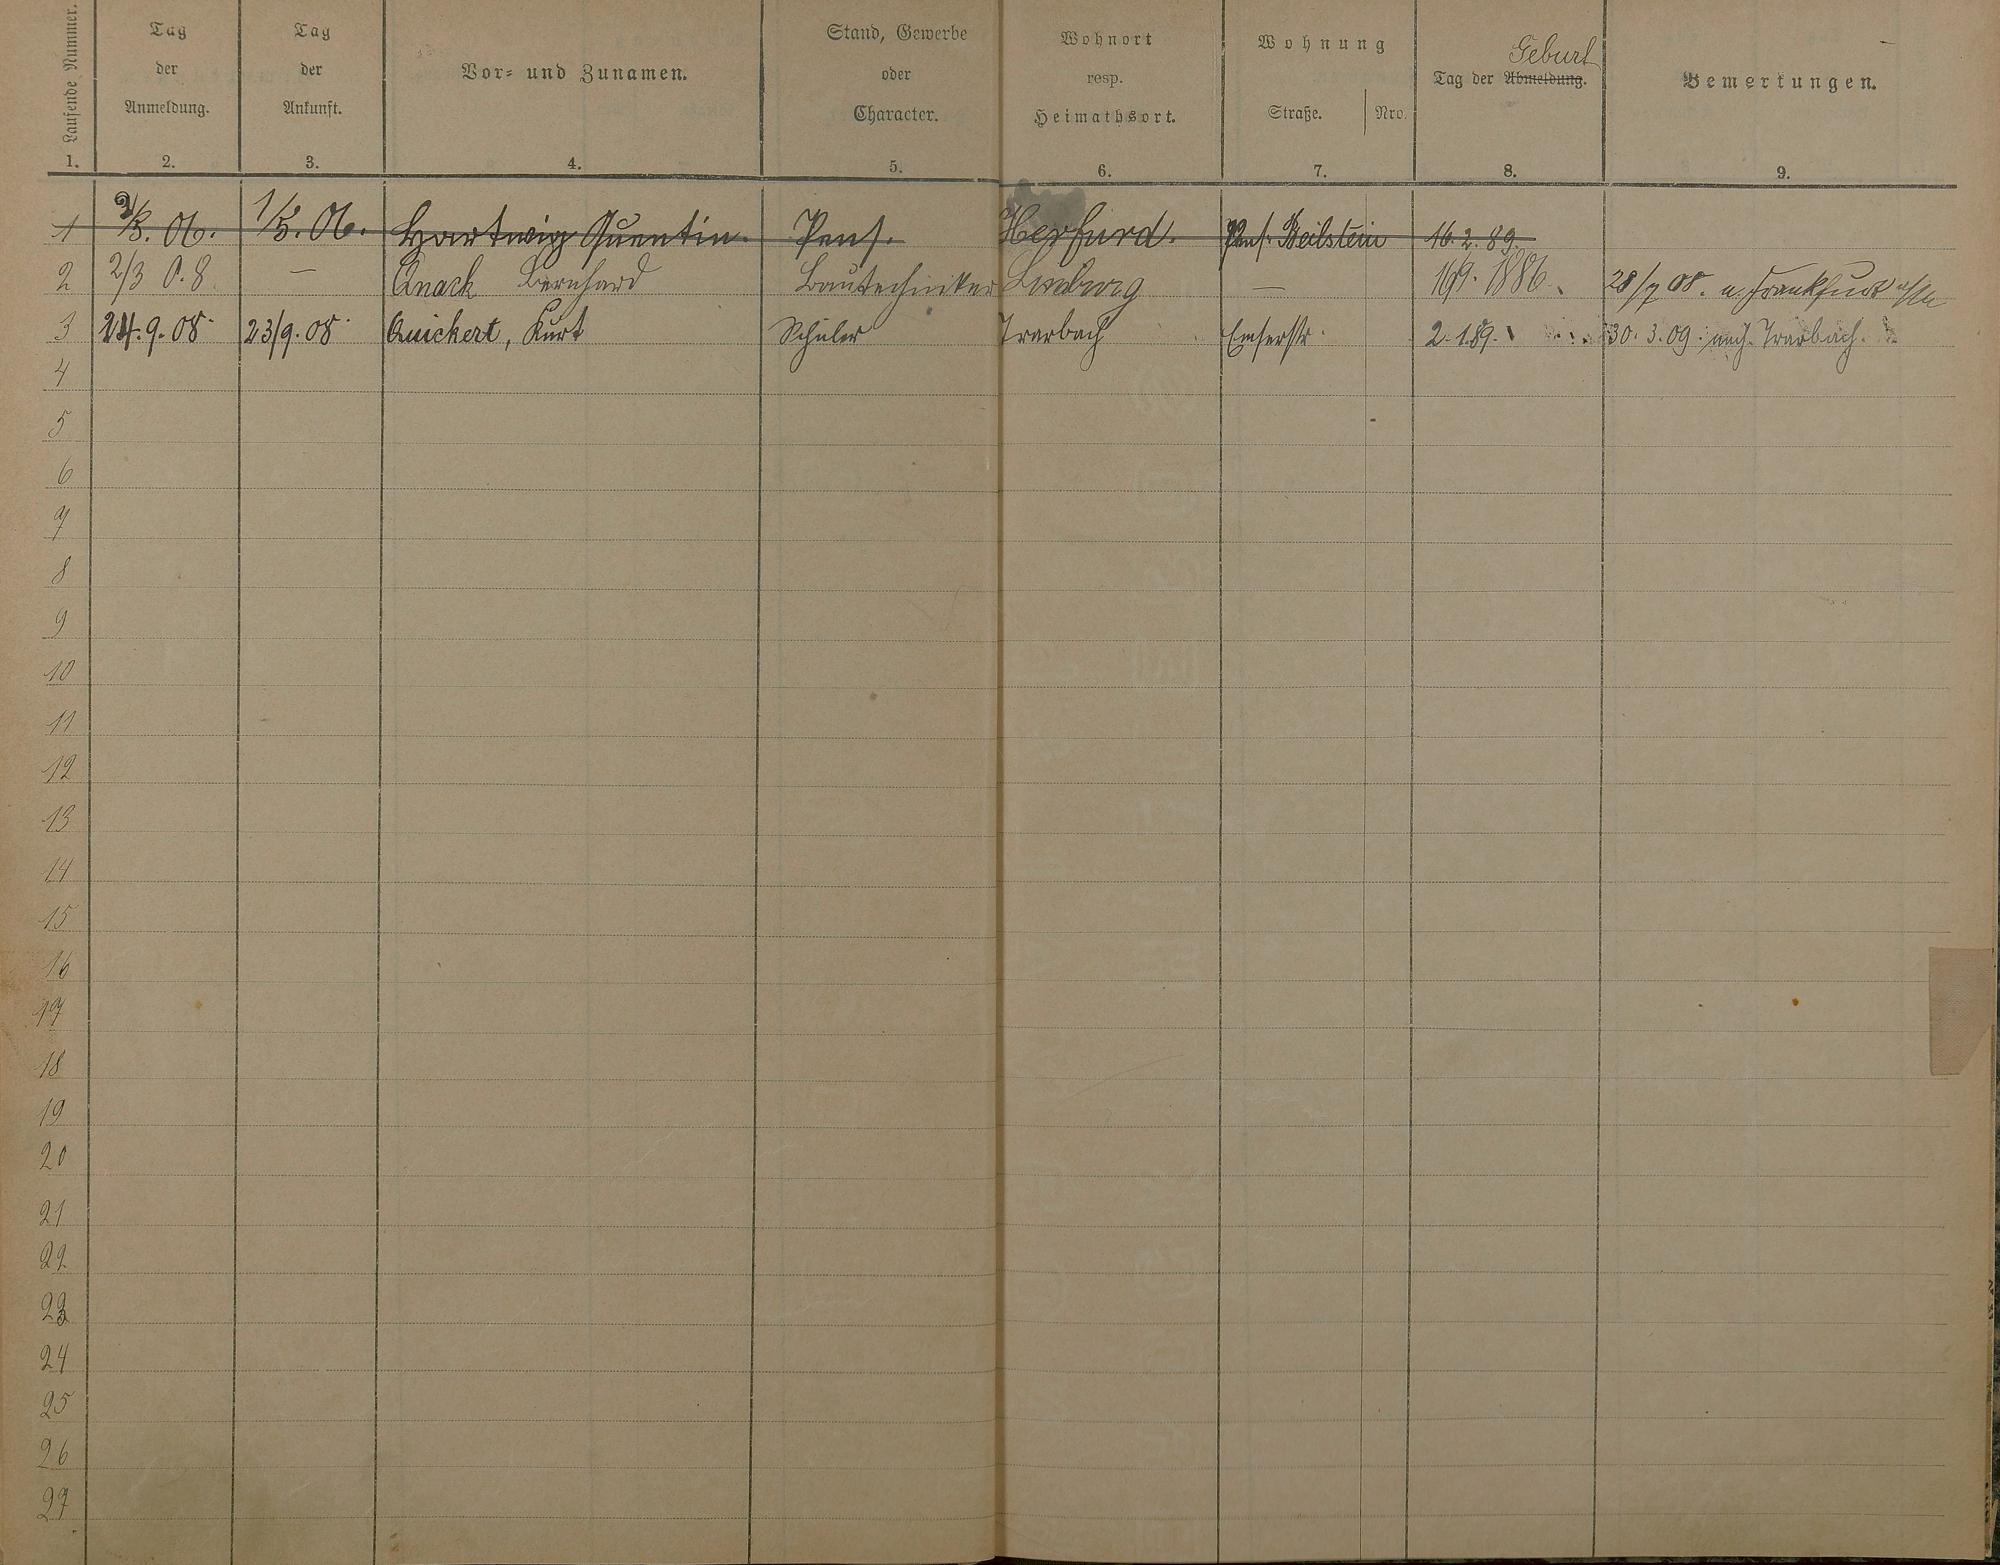 Laufende Nummer.
1.
Tag
der
Anmeldung.
2.
Tag
der
Ankunft.
3.
Vor= und Zunamen.
4.
Stand, Gewerbe
oder
Character.
5.
Wohnort
resp.
Heimathsort.
6.
Wohnung
Straße. Nro.
7.
Geburt
Tag der Abmeldung.
8.
Bemerkungen.
9.
1 2/5. 06. 1/5. 06. Hartwig Quentin. Pens. Herfurd. Pens. Beilstein 16. 2. 89.
2 2/3 0.8 — Quack Bernhard Bautechniker Limburg — 16/9. 1886. 28/7 08. n. Frankfurt a/M
3 24. 9. 08. 23/9. 08. Quickert, Kurt Schüler Trarbach Emserstr. 2. 1. 89. 30. 3. 09. nach Trarbach.
4
5
6
7
8
9
10
11
12
13
14
15
16
17
18
19
20
21
22
23
24
25
26
27